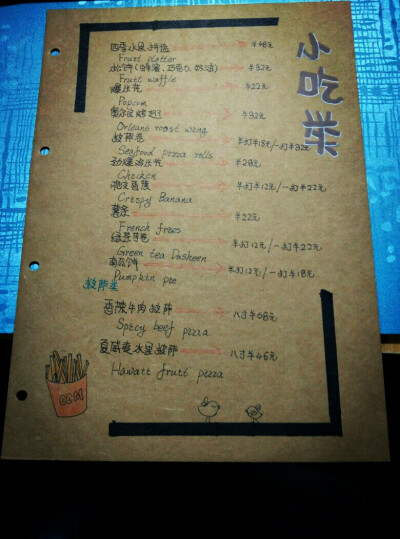 小吃类
四季水果拼盘 ¥48元
Fruit platter
¥32元
Fruit waffle
爆米花 ¥22元
Popcorn
奥尔良烤翅 ¥32元
Orleans roast wing
披萨卷 半打¥18元/一打¥32元
Seafood pizza rolls
劲爆鸡米花 ¥28元
Chicken
脆皮香蕉 半打¥12元/一打¥22元
Crispy Banana
薯条 ¥22元
French frees
绿茶芋卷 半打12元/一打¥22元
Green tea Dasheen
南瓜饼 半打12元/一打¥18元
Pumpkin pie
披萨类
香辣牛肉披萨 八寸¥68元
Spicy beef pizza
夏威夷水果披萨 八寸¥46元
Hawaii fruti pizza